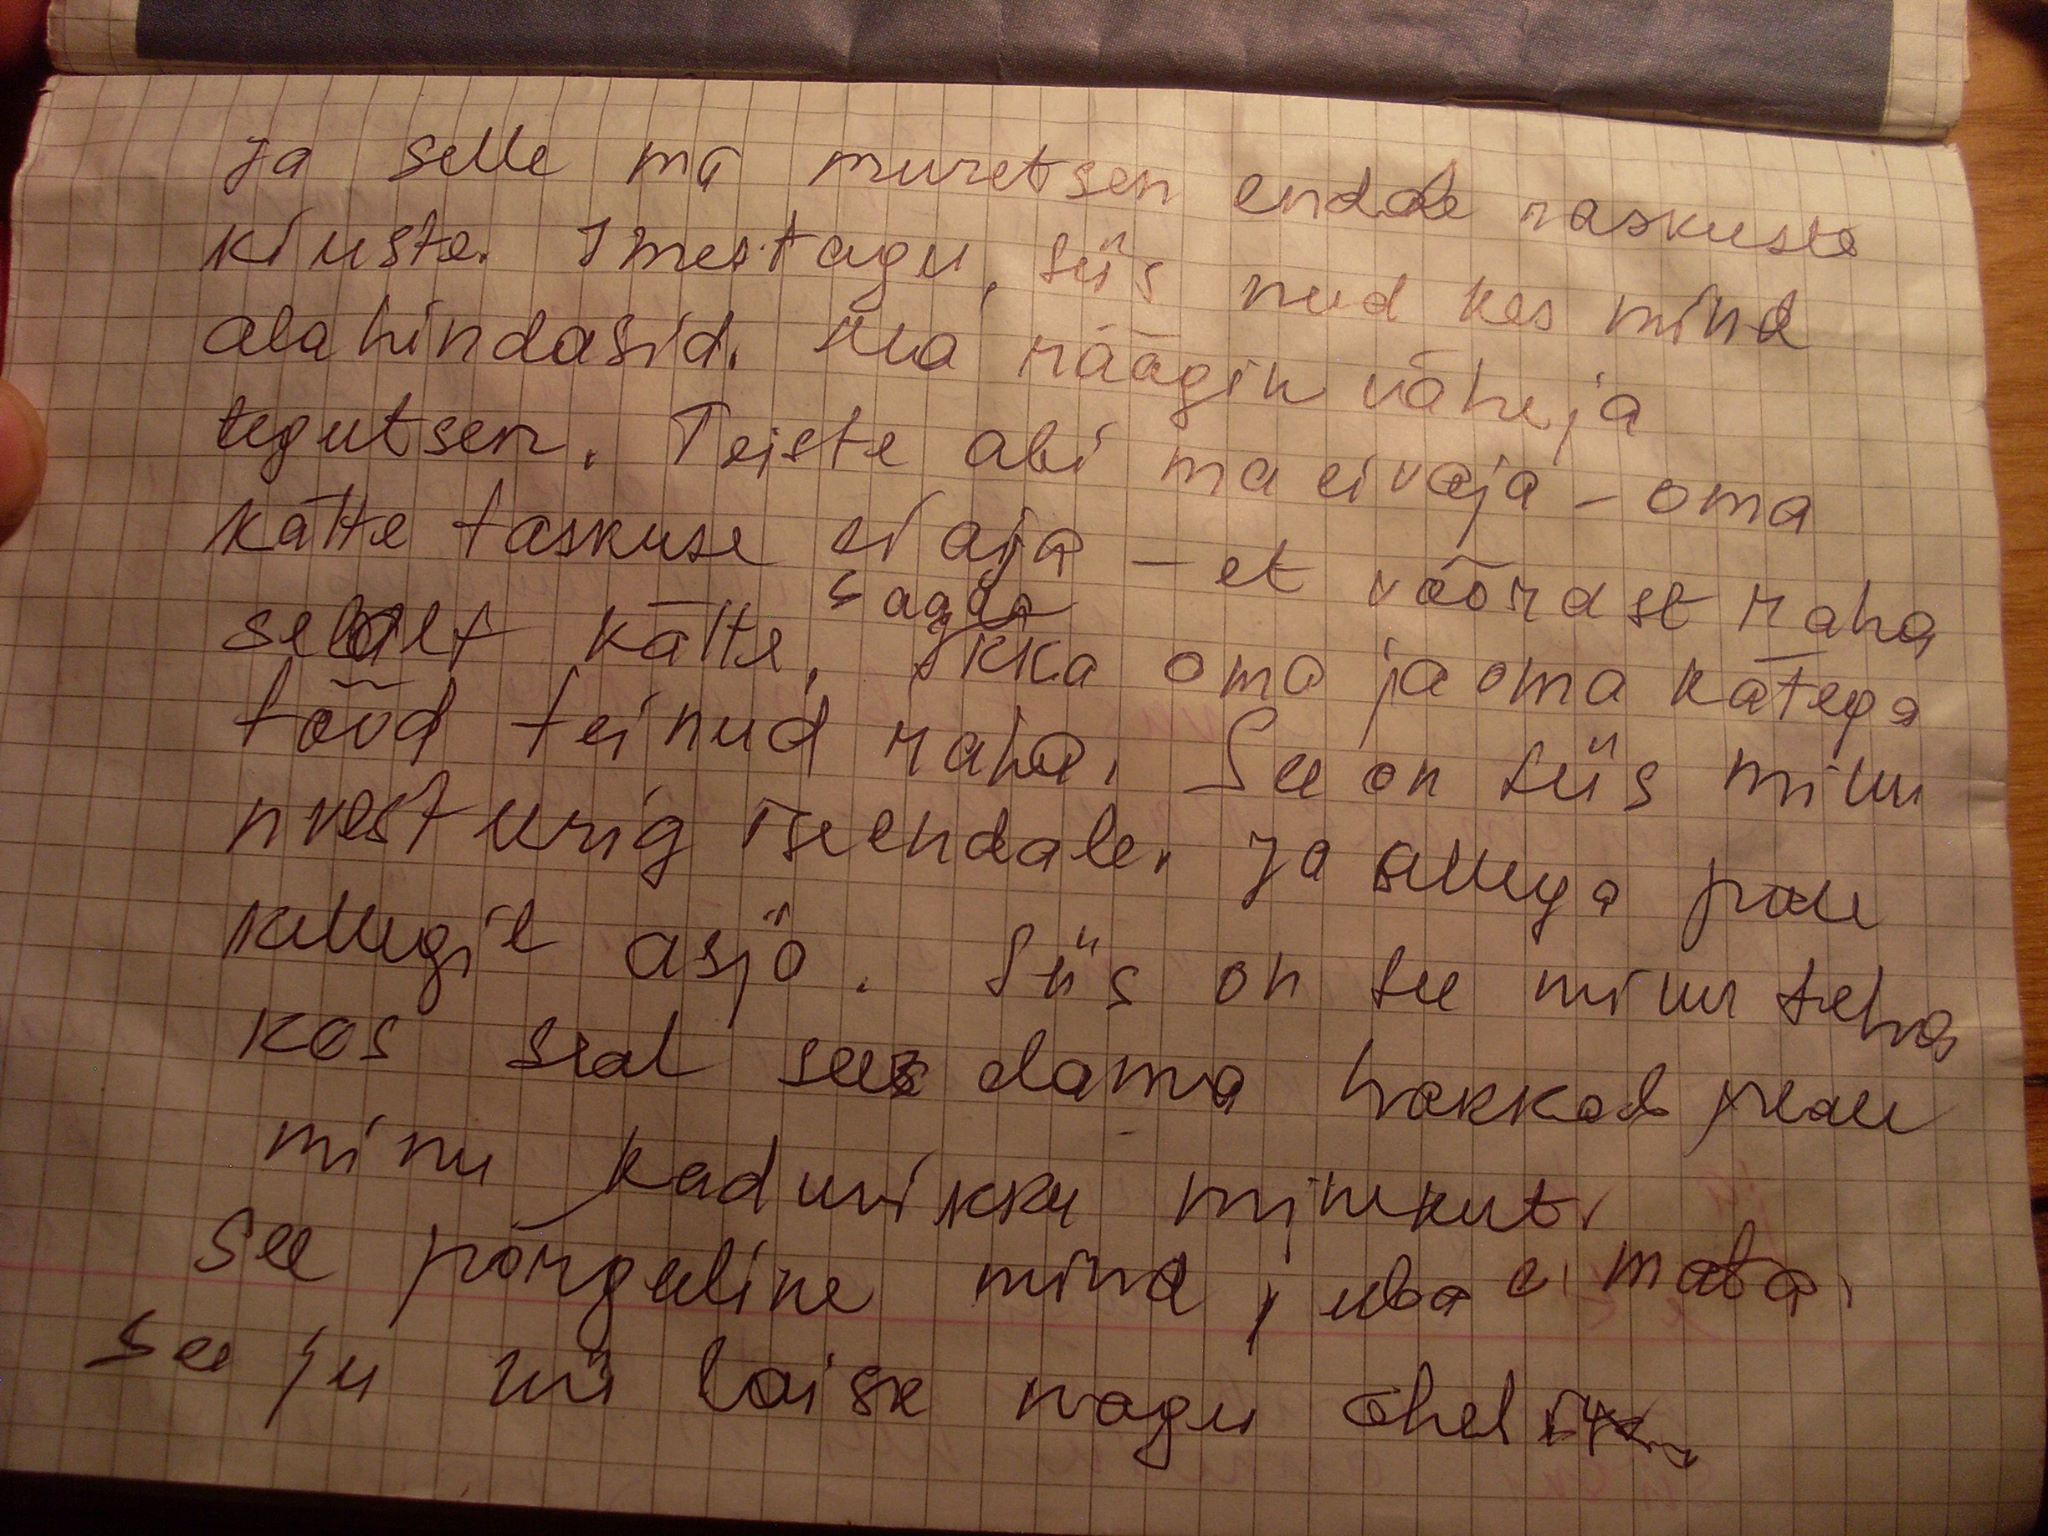 Ja selle ma muretsen endale raskuste
kiuste. Imestagu, siis nud kes mind
alahindasid. Ma räägin vähe ja
tegutsen. Teiste abi ma ei vaja - oma
kätte taskuse ei aja - et võõrast raha
sealt kätte, saada Ikka oma ja oma kätega
tööd teinud raha. See on siis minu
nvesturig iseendale. Ja sellega pole
kellegil asjo. Siis on see minu teha
kas seal sees dama hakkad peale
minu kadunikku minekut.
See põrguline mind juba ei mata.
See ju nii laisk nagu ühel